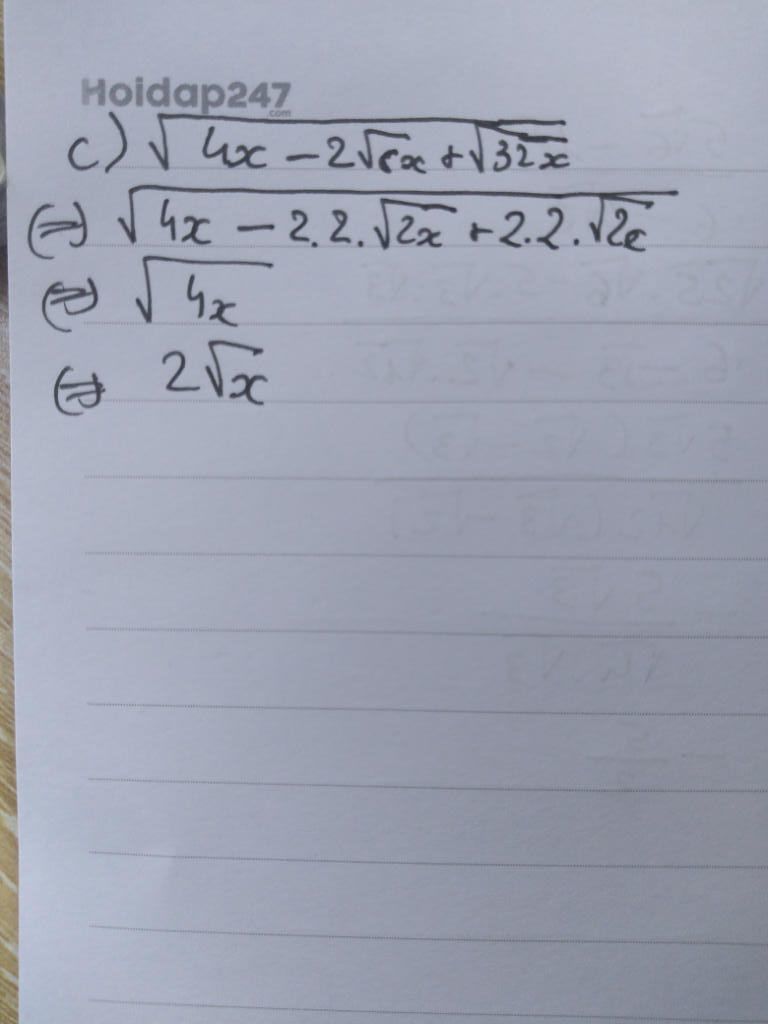 Hoidap247
.com
c) √(4x - 2√8x + √32x)
(=) √(4x - 2.2.√2x + 2.2.√2x)
(=) √4x
(=) 2√x